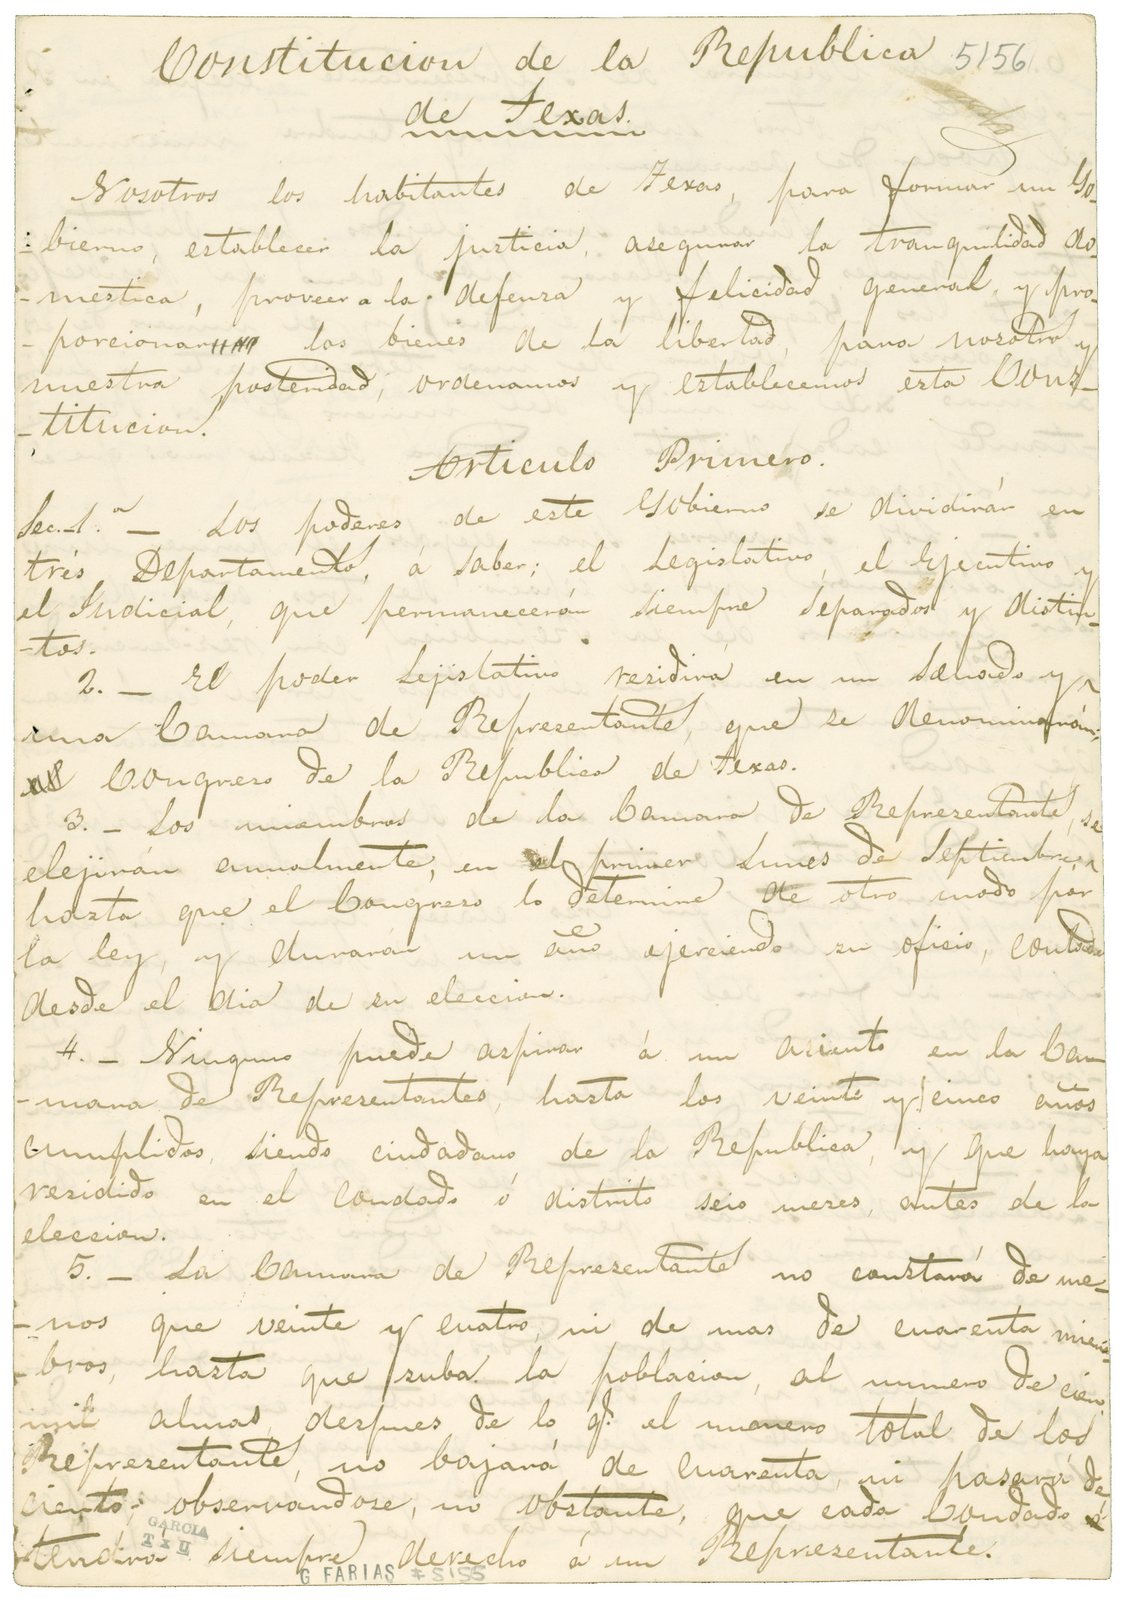 Constitucion de la Republica 5156
de Texas.
Nosotros los habitantes de Texas, para formar un Go-
-bierno, establecer la justicia, asegurar la tranquilidad do-
-mestica, proveer a la defenza y felicidad general, y pro-
-porcionar los bienes de la libertad, para nosotros y
nuestra posteridad, ordenamos y establecemos esta Cons-
-titucion.
Articulo Primero.
Sec. 1.ª — Los poderes de este Gobierno se dividirán en
trés Departamentos, á saber; el Legislativo, el Ejecutivo y
el Judicial, que permanecerán siempre separados y distin-
-tos.
2. — El poder Lejislativo residirá en un Senado y
una Camara de Representantes, que se denominarán,
Congreso de la Republica de Texas.
3. — Los miembros de la Camara de Representantes, se
elejirán anualmente, en el primer Lunes de Septiembre,
hasta que el Congreso lo determine de otro modo por
la ley, y durarán un año ejerciendo su oficio, contado
desde el dia de su eleccion.
4. — Ninguno puede aspirar á un asiento en la Ca-
-mara de Representantes, hasta los veinte y cinco años
cumplidos, siendo ciudadano de la Republica, y que haya
residido en el Condado ó distrito seis meses, antes de la
eleccion.
5. — La Camara de Representantes no constará de me-
-nos que veinte y cuatro, ni de mas de cuarenta miem-
-bros, hasta que suba la poblacion, al numero de cien
mil almas, despues de lo q.e el numero total de los
Representantes, no bajará de cuarenta, ni pasará de
ciento; observandose, no obstante, que cada Condado
tendrá siempre derecho á un Representante.
GARCIA
TXU
G FARIAS #5155